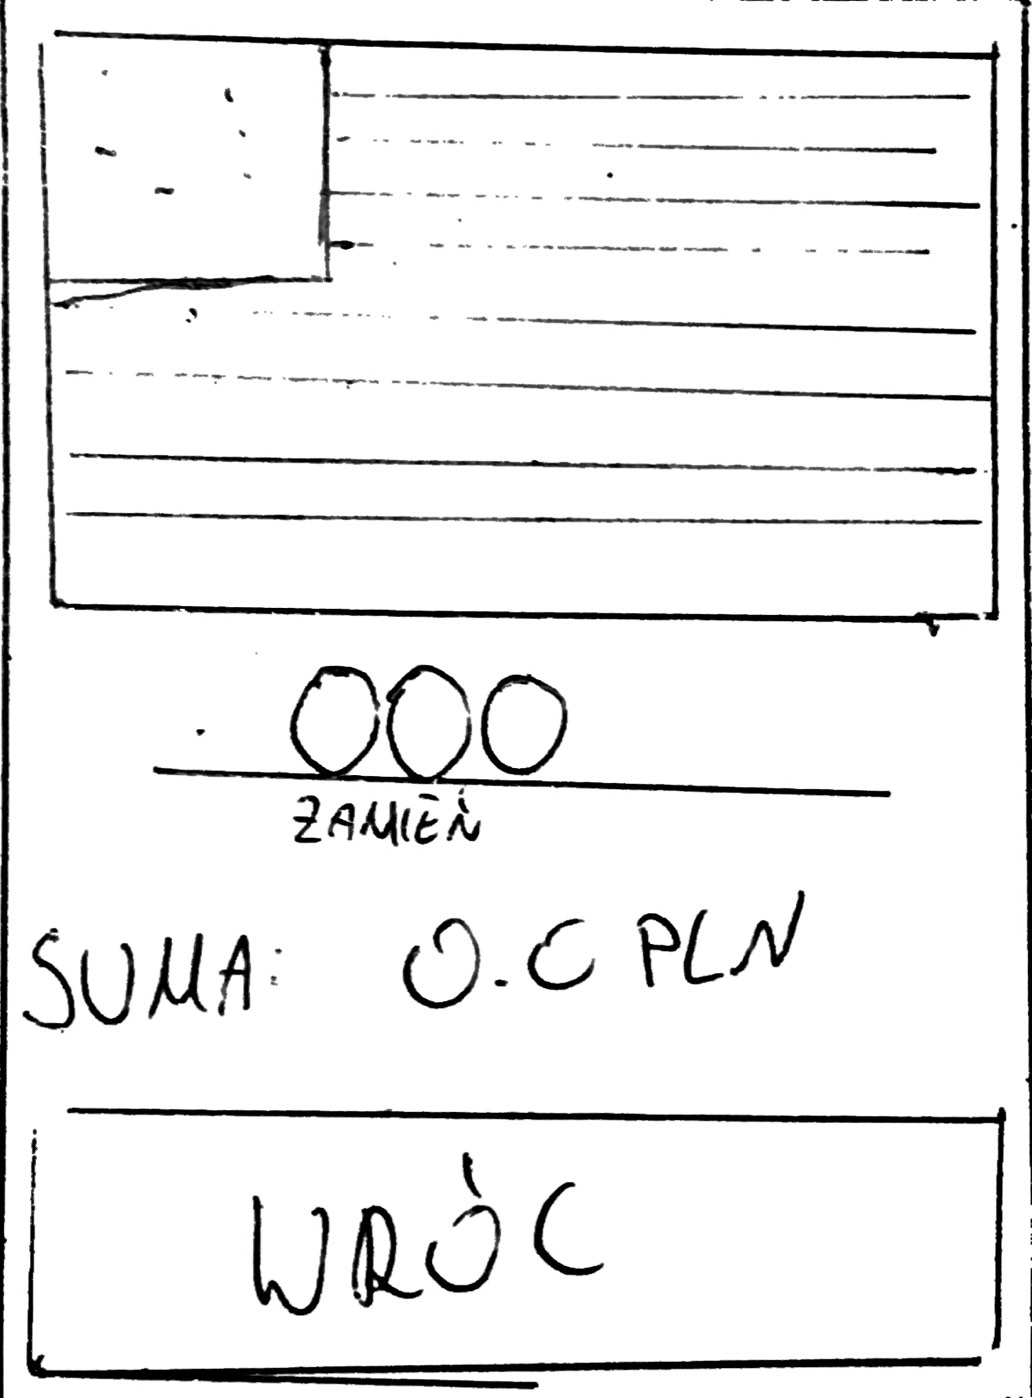 000
ZAMIEŃ
SUMA: 0.0 PLN
WRÓC